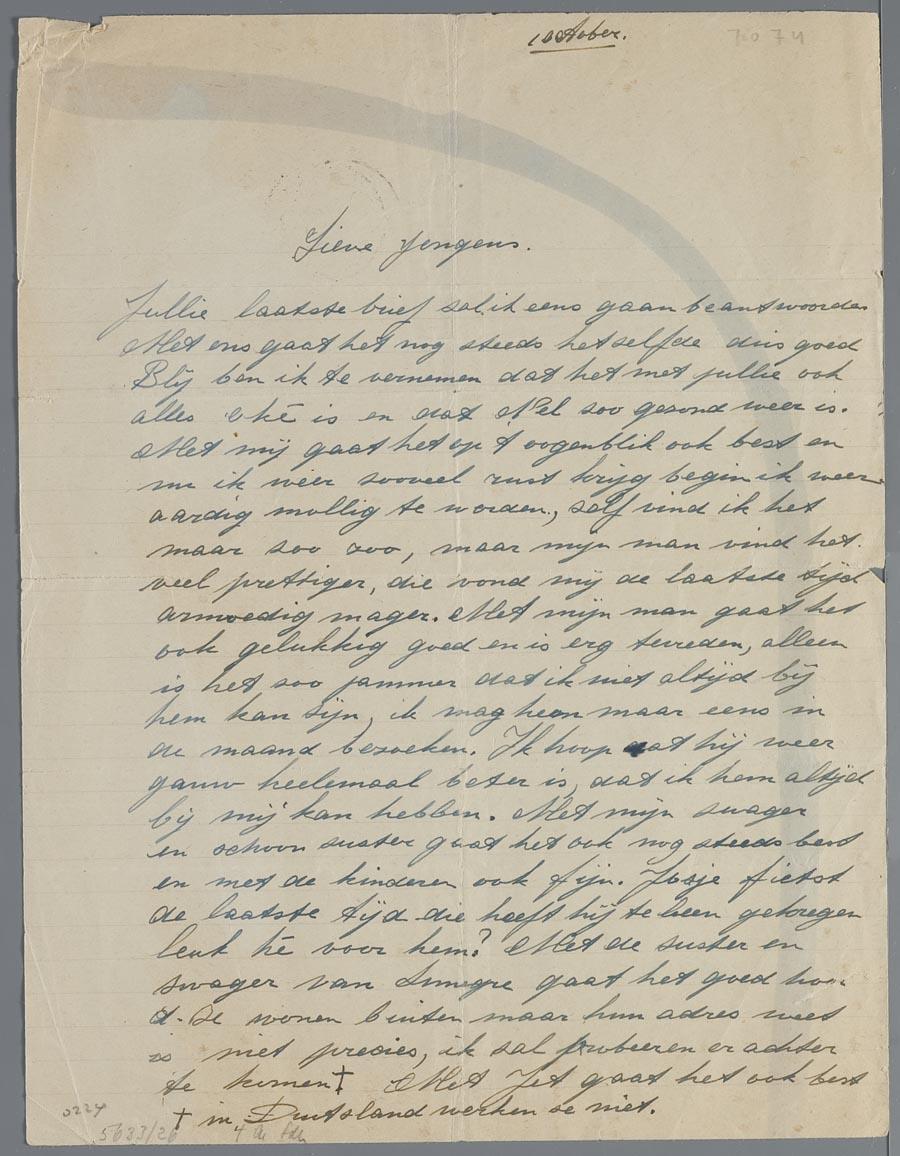 1 october.
7074
Lieve Jongens.
Jullie laatste brief sal ik eens gaan beantwoorden
Met ons gaat het nog steeds hetselfde dus goed
Blij ben ik te vernemen dat het met jullie ook
alles oké is en dat Nel soo gezond weer is.
Met mij gaat het op 't oogenblik ook best en
nu ik weer sooveel rust krijg begin ik weer
aardig mollig te worden, self vind ik het
maar soo soo, maar mijn man vind het
veel prettiger, die vond mij de laatste tijd
armoedig mager. Met mijn man gaat het
ook gelukkig goed en is erg tevreden, alleen
is het soo jammer dat ik niet altijd bij
hem kan sijn, ik mag heen maar eens in
de maand bezoeken. Ik hoop dat hij weer
gauw heelemaal beter is, dat ik hem altijd
bij mij kan hebben. Met mijn swager
en schoon suster gaat het ook nog steeds best
en met de kinderen ook fijn. Josje fietst
de laatste tijd die heeft hij te leen gekregen
leuk hè voor hem? Met de suster en
swager van gaat het goed
Se wonen buiten maar hun adres weet
is niet precies, ik sal probeeren er achter
te komen † Met Jet gaat het ook best
† in Duitsland werken se niet.
0224
5633/26